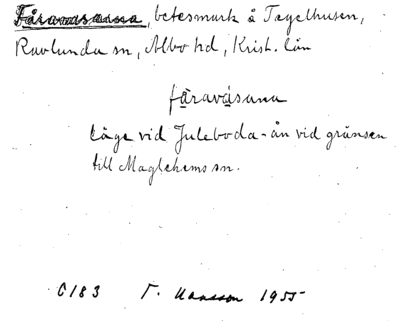 Fåravåsarna, betesmark å Tegelhusen,
Ravlunda sn, Albo hd, Krist. län
fåravásana
läge vid Juleboda-ån vid gränsen
till Maglehems sn.
C183 Hansson 1955